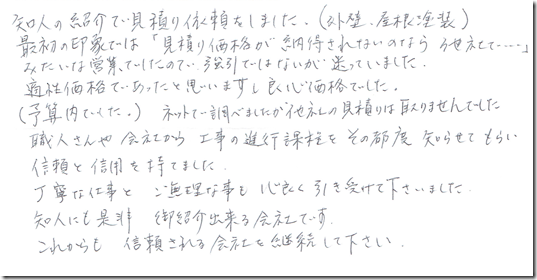 知人の紹介で見積り依頼をしました。(外壁、屋根塗装)
最初の印象では「見積り価格が納得されないのなら他社で……」
みたいな営業でしたので、強引ではないが迷っていました。
適性価格であったと思いますし良心価格でした。
(予算内でした。) ネットで調べましたが他社の見積りは取りませんでした
職人さんや会社から工事の進行課程をその都度知らせてもらい
信頼と信用を持てました。
丁寧な仕事とご無理な事も心良く引き受けて下さいました。
知人にも是非御紹介出来る会社です。
これからも信頼される会社を継続して下さい。